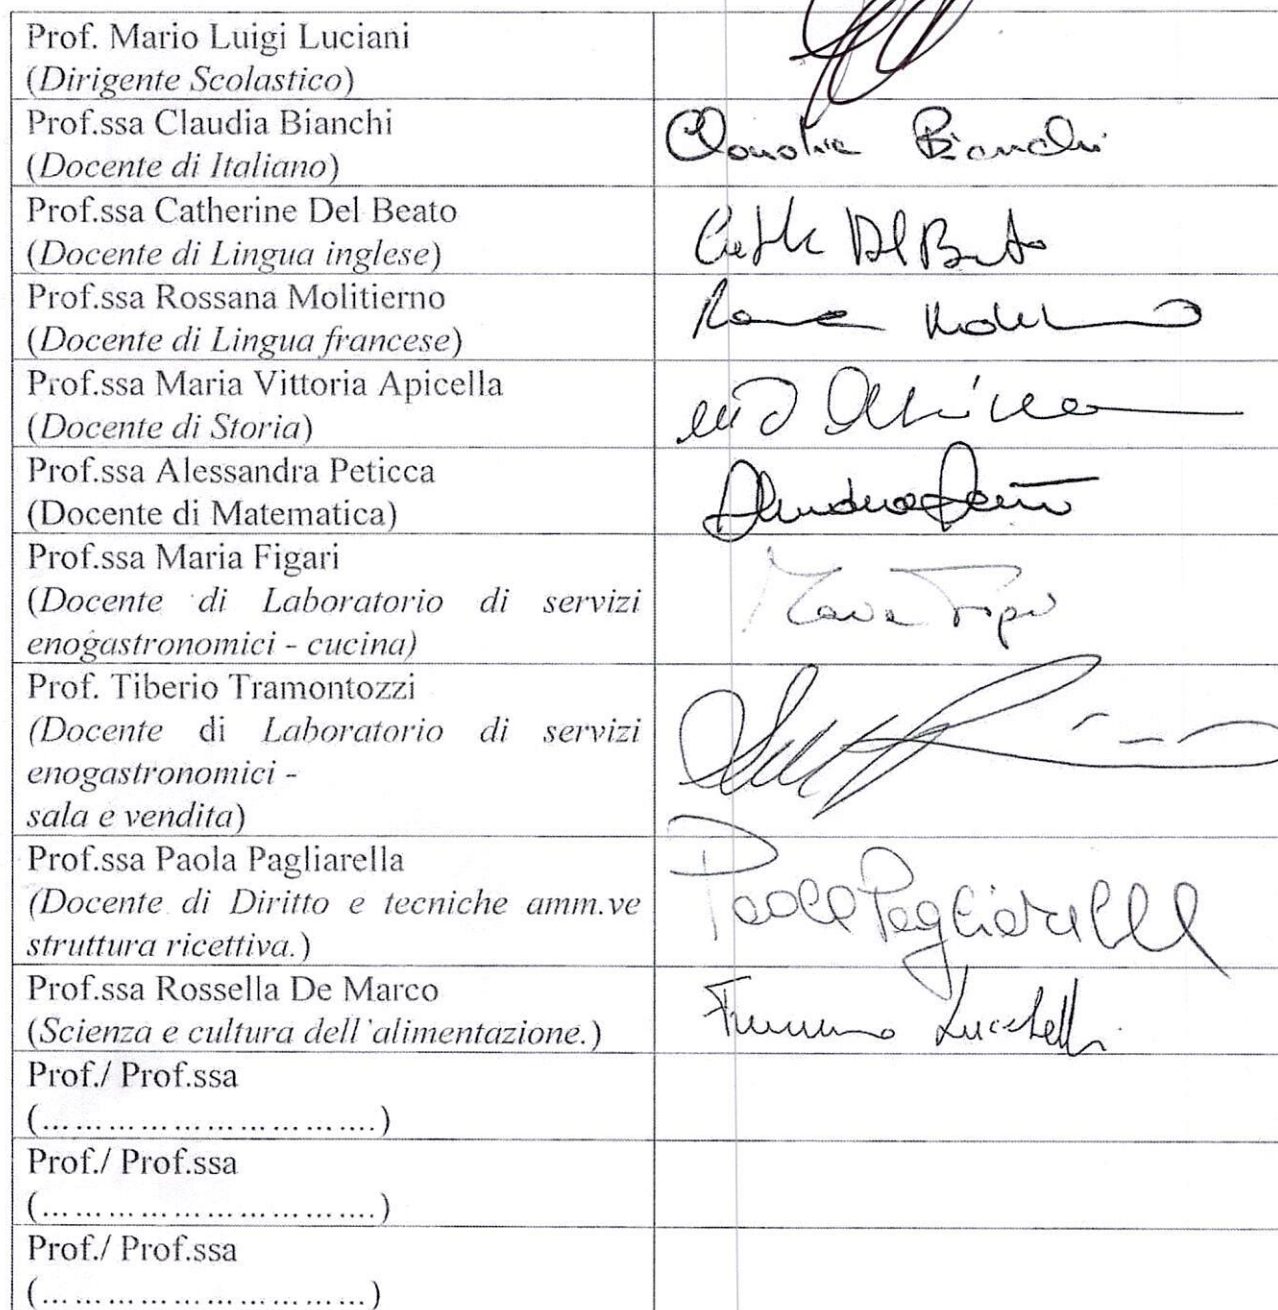 Prof. Mario Luigi Luciani
(Dirigente Scolastico)
Prof.ssa Claudia Bianchi
(Docente di Italiano)
Claudia Bianchi
Prof.ssa Catherine Del Beato
(Docente di Lingua inglese)
Prof.ssa Rossana Molitierno
(Docente di Lingua francese)
Prof.ssa Maria Vittoria Apicella
(Docente di Storia)
Prof.ssa Alessandra Peticca
(Docente di Matematica)
Prof.ssa Maria Figari
(Docente di Laboratorio di servizi
enogastronomici - cucina)
Prof. Tiberio Tramontozzi
(Docente di Laboratorio di servizi
enogastronomici -
sala e vendita)
Prof.ssa Paola Pagliarella
(Docente di Diritto e tecniche amm.ve
struttura ricettiva.)
Paola Pagliarella
Prof.ssa Rossella De Marco
(Scienza e cultura dell'alimentazione.)
Prof./ Prof.ssa
(……………………………)
Prof./ Prof.ssa
(……………………………)
Prof./ Prof.ssa
(……………………………)